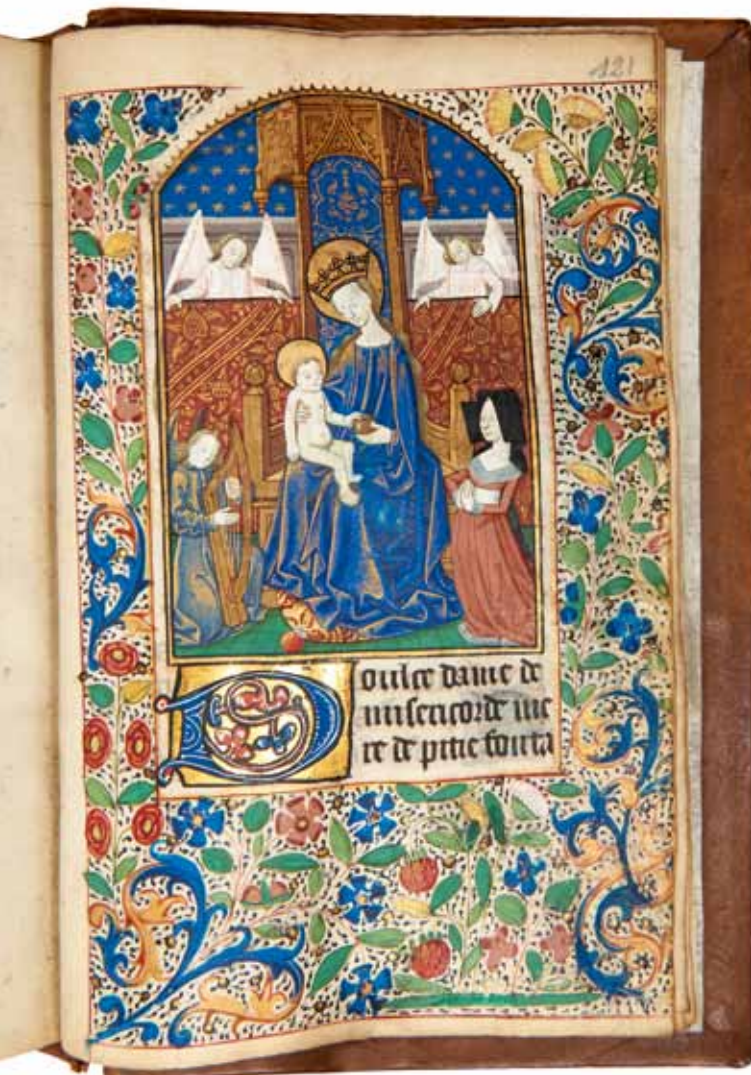 121
Doulce dame de
misericorde me
re de pitie fonta